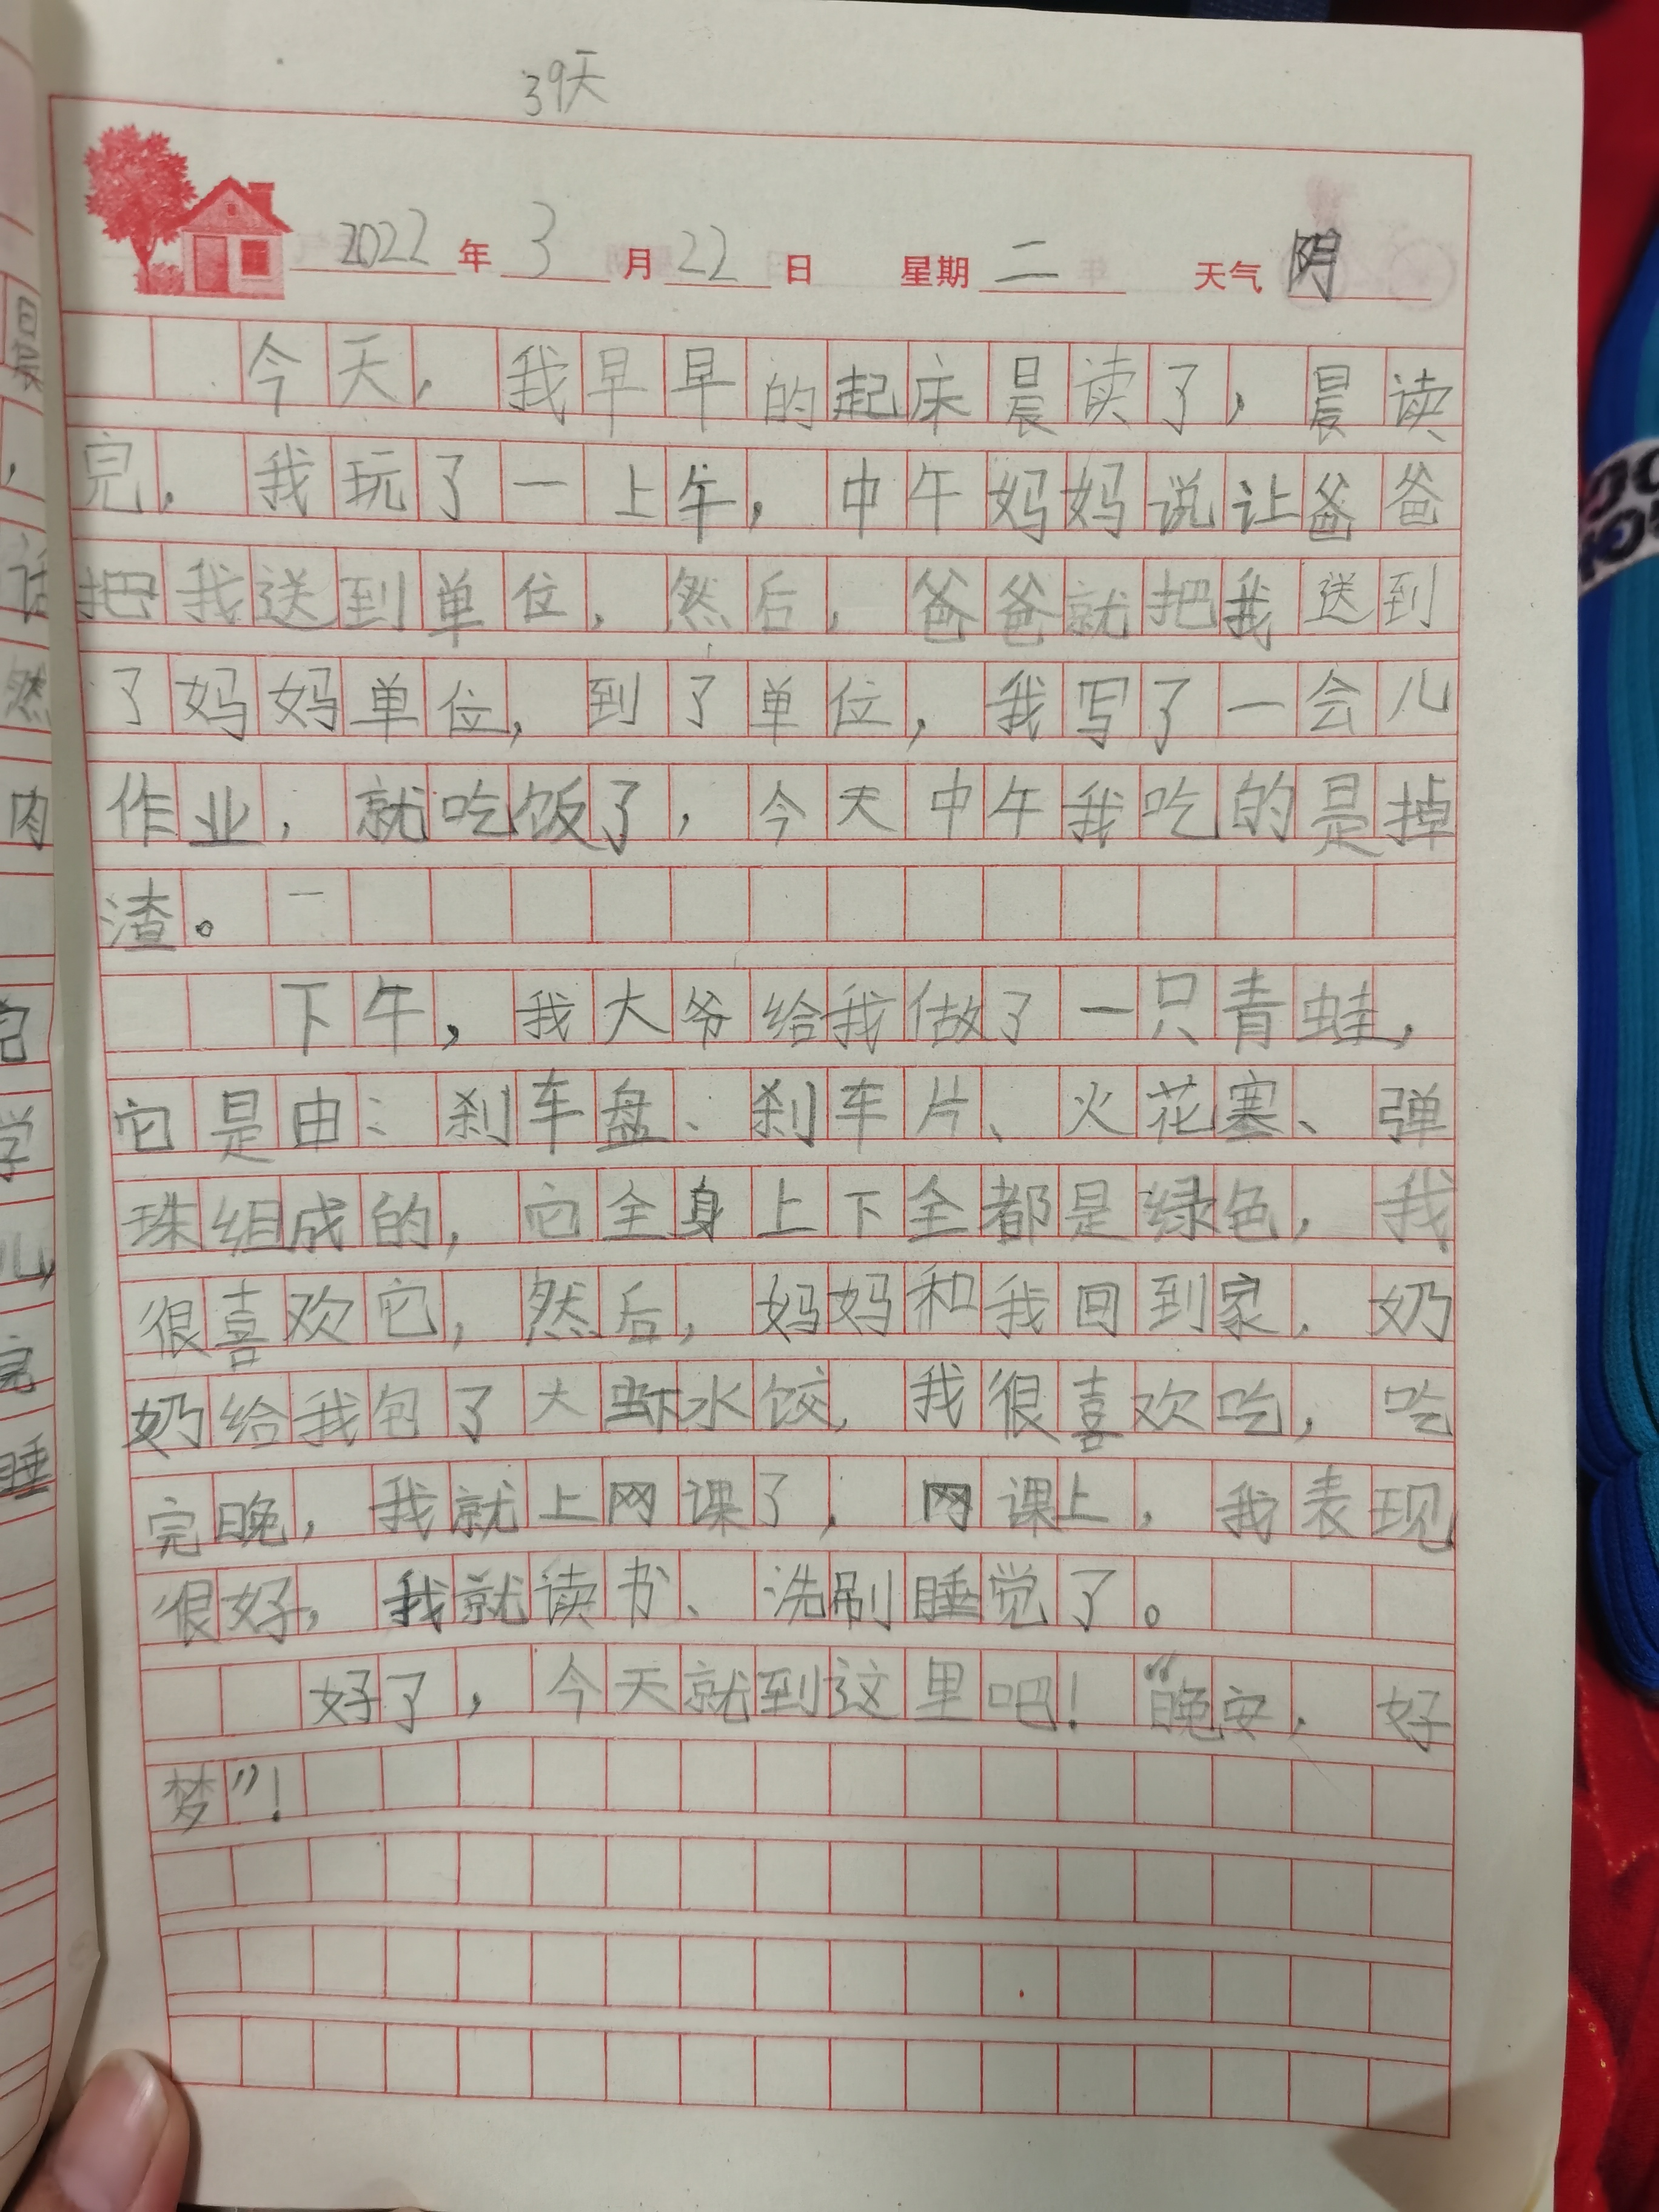 39天
2022年3月22日 星期二 天气阴
今天，我早早的起床晨读了，晨读
完，我玩了一上午，中午妈妈说让爸爸
把我送到单位，然后，爸爸就把我送到
了妈妈单位，到了单位，我写了一会儿
作业，就吃饭了，今天中午我吃的是掉
渣。一
下午，我大爷给我做了一只青蛙，
它是由：刹车盘、刹车片、火花塞、弹
珠组成的，它全身上下全都是绿色，我
很喜欢它，然后，妈妈和我回到家，奶
奶给我包了大虾水饺，我很喜欢吃，吃
完晚，我就上网课了，网课上，我表现
很好，我就读书、洗刷睡觉了。
好了，今天就到这里吧！“晚安，好
梦”！